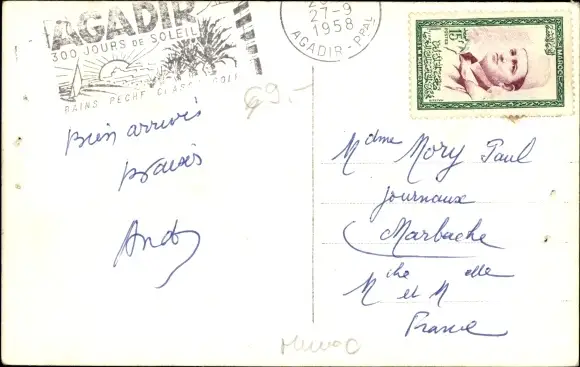 AGADIR
300 JOURS DE SOLEIL
BAINS PECHE CHASSE GOLF
27-9
1958
AGADIR-PPAL
15F
POSTES
MAROC
69.-
Bien arrivés
Andy
Mdme Mory Paul
Journaux
Marbache
Mthe et Mlle
France
Maroc